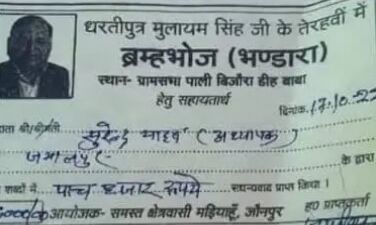 धरतीपुत्र मुलायम सिंह जी के तेरहवीं में
ब्रम्हभोज (भण्डारा)
स्थान- ग्रामसभा पाली बिजौरा डीह बाबा
हेतु सहायतार्थ
दिनांक 17.10.22
दाता श्री/श्रीमती सुरेन्द्र यादव (अध्यापक)
जमालपुर के द्वारा
शब्दों में पाच हजार रूपये सधन्यवाद प्राप्त किया।
आयोजक- समस्त क्षेत्रवासी मड़ियाहूँ, जौनपुर ह0 प्राप्तकर्ता